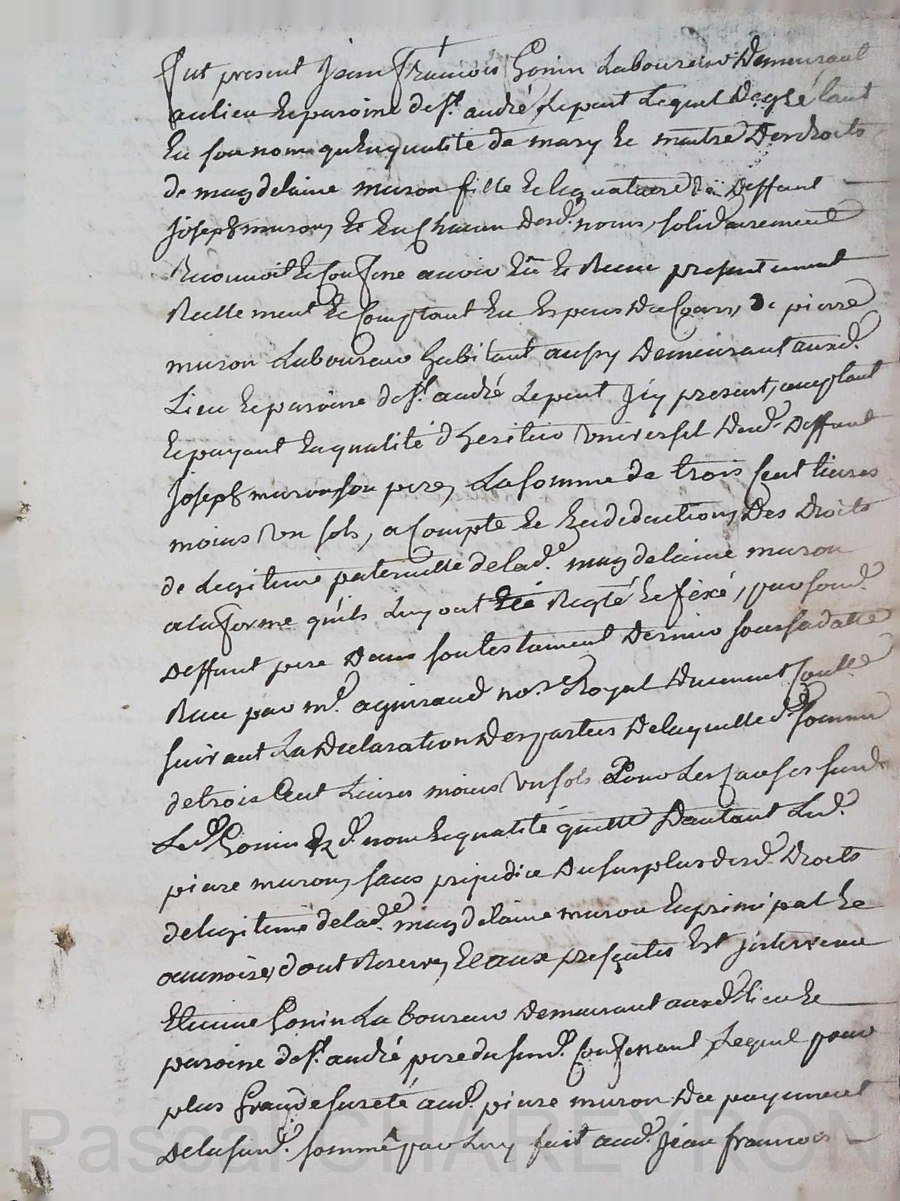 fut present Jean François Gonin Laboureur Demeurant
au lieu & paroine de st. andré Le puit Lequel De gré tant
En son nom qu'En qualité de mary Et maitre Des droits
de magdelaine muron fille & Legataire de Deffunt
Joseph muron, Et En Chacun Desd. noms solidairement
Reconnoit & Confesse avoir Eu & Receu presentement
Reellement & Comptant En Especes Du Cours, De pierre
muron Laboureur habitant aussy Demeurant aud.
Lieu & paroine de st. andré Le puit Jcy present, acceptant
& payant En qualité d'heritier universel Dud. Deffunt
Joseph muron son pere, La somme de trois Cent livres
moins un sols, a Compte & En deduction, Des Droits
de Legitime paternelle de lad. magdelaine muron
a la forme qu'ils Luy ont Eté Reglé & fixé, par sond.
Deffunt pere Dans son testament Dernier sous sa datte
Receu par me. aguiraud nore. Royal Duement Conllé
suivant La Declaration Des parties De laquelle d. somme
de trois Cent Livres moins un sols Pour Les Causes susd.
Led. Gonin Esd. nom & qualité quitte D'autant Led.
pierre muron, sans prejudice Du surplus desd. Droits
de legitime de lad. magdelaine muron En principal &
accessoires, dont Reserve, & aux presentes Est jntervenu
Etienne Gonin Laboureur Demeurant aud. Lieu &
paroine de st. andré pere du susd. Confessant, Lequel pour
plus Grande sureté aud. pierre muron Du payement
De la susd. somme par Luy fait aud. Jean francois
Pascal CHARETRON